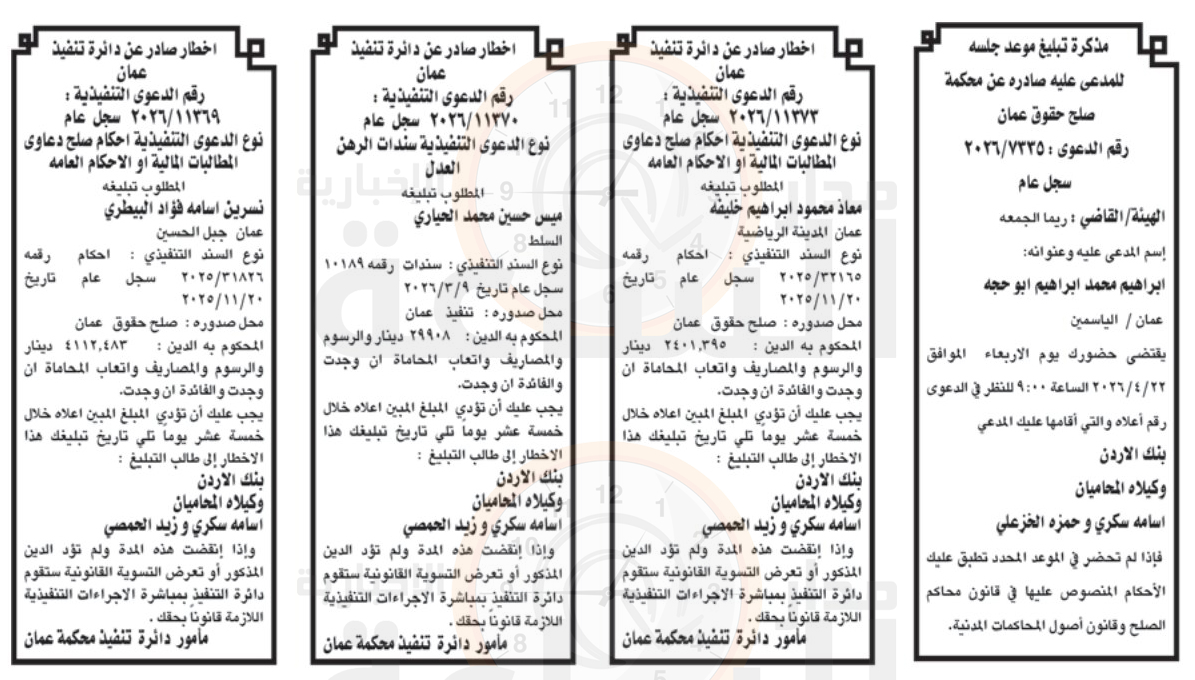 مذكرة تبليغ موعد جلسه
للمدعى عليه صادره عن محكمة
صلح حقوق عمان
رقم الدعوى : ٢٠٢٦/٧٣٣٥
سجل عام
الهيئة/القاضي : ريما الجمعه
إسم المدعى عليه وعنوانه:
ابراهيم محمد ابراهيم ابو حجه
عمان / الياسمين
يقتضى حضورك يوم الاربعاء الموافق
٢٠٢٦/٤/٢٢ الساعة ٩:٠٠ للنظر في الدعوى
رقم أعلاه والتي أقامها عليك المدعي
بنك الاردن
وكيلاه المحاميان
اسامه سكري و حمزه الخزعلي
فإذا لم تحضر في الموعد المحدد تطبق عليك
الأحكام المنصوص عليها في قانون محاكم
الصلح وقانون أصول المحاكمات المدنية.
اخطار صادر عن دائرة تنفيذ
عمان
رقم الدعوى التنفيذية :
٢٠٢٦/١١٣٧٣ سجل عام
نوع الدعوى التنفيذية احكام صلح دعاوى
المطالبات المالية او الاحكام العامه
المطلوب تبليغه
معاذ محمود ابراهيم خليفه
عمان المدينة الرياضية
نوع السند التنفيذي : احكام رقمه
٢٠٢٥/٣٢١٦٥ سجل عام تاريخ
٢٠٢٥/١١/٢٠
محل صدوره : صلح حقوق عمان
المحكوم به الدين : ٢٤٠١,٣٩٥ دينار
والرسوم والمصاريف واتعاب المحاماة ان
وجدت والفائدة ان وجدت.
يجب عليك أن تؤدي المبلغ المبين اعلاه خلال
خمسة عشر يوماً تلي تاريخ تبليغك هذا
الاخطار إلى طالب التبليغ :
بنك الاردن
وكيلاه المحاميان
اسامه سكري و زيد الحمصي
وإذا إنقضت هذه المدة ولم تؤد الدين
المذكور أو تعرض التسوية القانونية ستقوم
دائرة التنفيذ بمباشرة الاجراءات التنفيذية
اللازمة قانوناً بحقك .
مأمور دائرة تنفيذ محكمة عمان
اخطار صادر عن دائرة تنفيذ
عمان
رقم الدعوى التنفيذية :
٢٠٢٦/١١٣٧٠ سجل عام
نوع الدعوى التنفيذية سندات الرهن
العدل
المطلوب تبليغه
ميس حسين محمد الحياري
السلط
نوع السند التنفيذي : سندات رقمه ١٠١٨٩
سجل عام تاريخ ٢٠٢٦/٣/٩
محل صدوره : تنفيذ عمان
المحكوم به الدين : ٢٩٩٠٨ دينار والرسوم
والمصاريف واتعاب المحاماة ان وجدت
والفائدة ان وجدت.
يجب عليك أن تؤدي المبلغ المبين اعلاه خلال
خمسة عشر يوماً تلي تاريخ تبليغك هذا
الاخطار إلى طالب التبليغ :
بنك الاردن
وكيلاه المحاميان
اسامه سكري و زيد الحمصي
وإذا إنقضت هذه المدة ولم تؤد الدين
المذكور أو تعرض التسوية القانونية ستقوم
دائرة التنفيذ بمباشرة الاجراءات التنفيذية
اللازمة قانوناً بحقك .
مأمور دائرة تنفيذ محكمة عمان
اخطار صادر عن دائرة تنفيذ
عمان
رقم الدعوى التنفيذية :
٢٠٢٦/١١٣٦٩ سجل عام
نوع الدعوى التنفيذية احكام صلح دعاوى
المطالبات المالية او الاحكام العامه
المطلوب تبليغه
نسرين اسامه فؤاد البيطري
عمان جبل الحسين
نوع السند التنفيذي : احكام رقمه
٢٠٢٥/٣١٨٢٦ سجل عام تاريخ
٢٠٢٥/١١/٢٠
محل صدوره : صلح حقوق عمان
المحكوم به الدين : ٤١١٢,٤٨٣ دينار
والرسوم والمصاريف واتعاب المحاماة ان
وجدت والفائدة ان وجدت.
يجب عليك أن تؤدي المبلغ المبين اعلاه خلال
خمسة عشر يوماً تلي تاريخ تبليغك هذا
الاخطار إلى طالب التبليغ :
بنك الاردن
وكيلاه المحاميان
اسامه سكري و زيد الحمصي
وإذا إنقضت هذه المدة ولم تؤد الدين
المذكور أو تعرض التسوية القانونية ستقوم
دائرة التنفيذ بمباشرة الاجراءات التنفيذية
اللازمة قانوناً بحقك .
مأمور دائرة تنفيذ محكمة عمان
مدار الساعة
الإخبارية